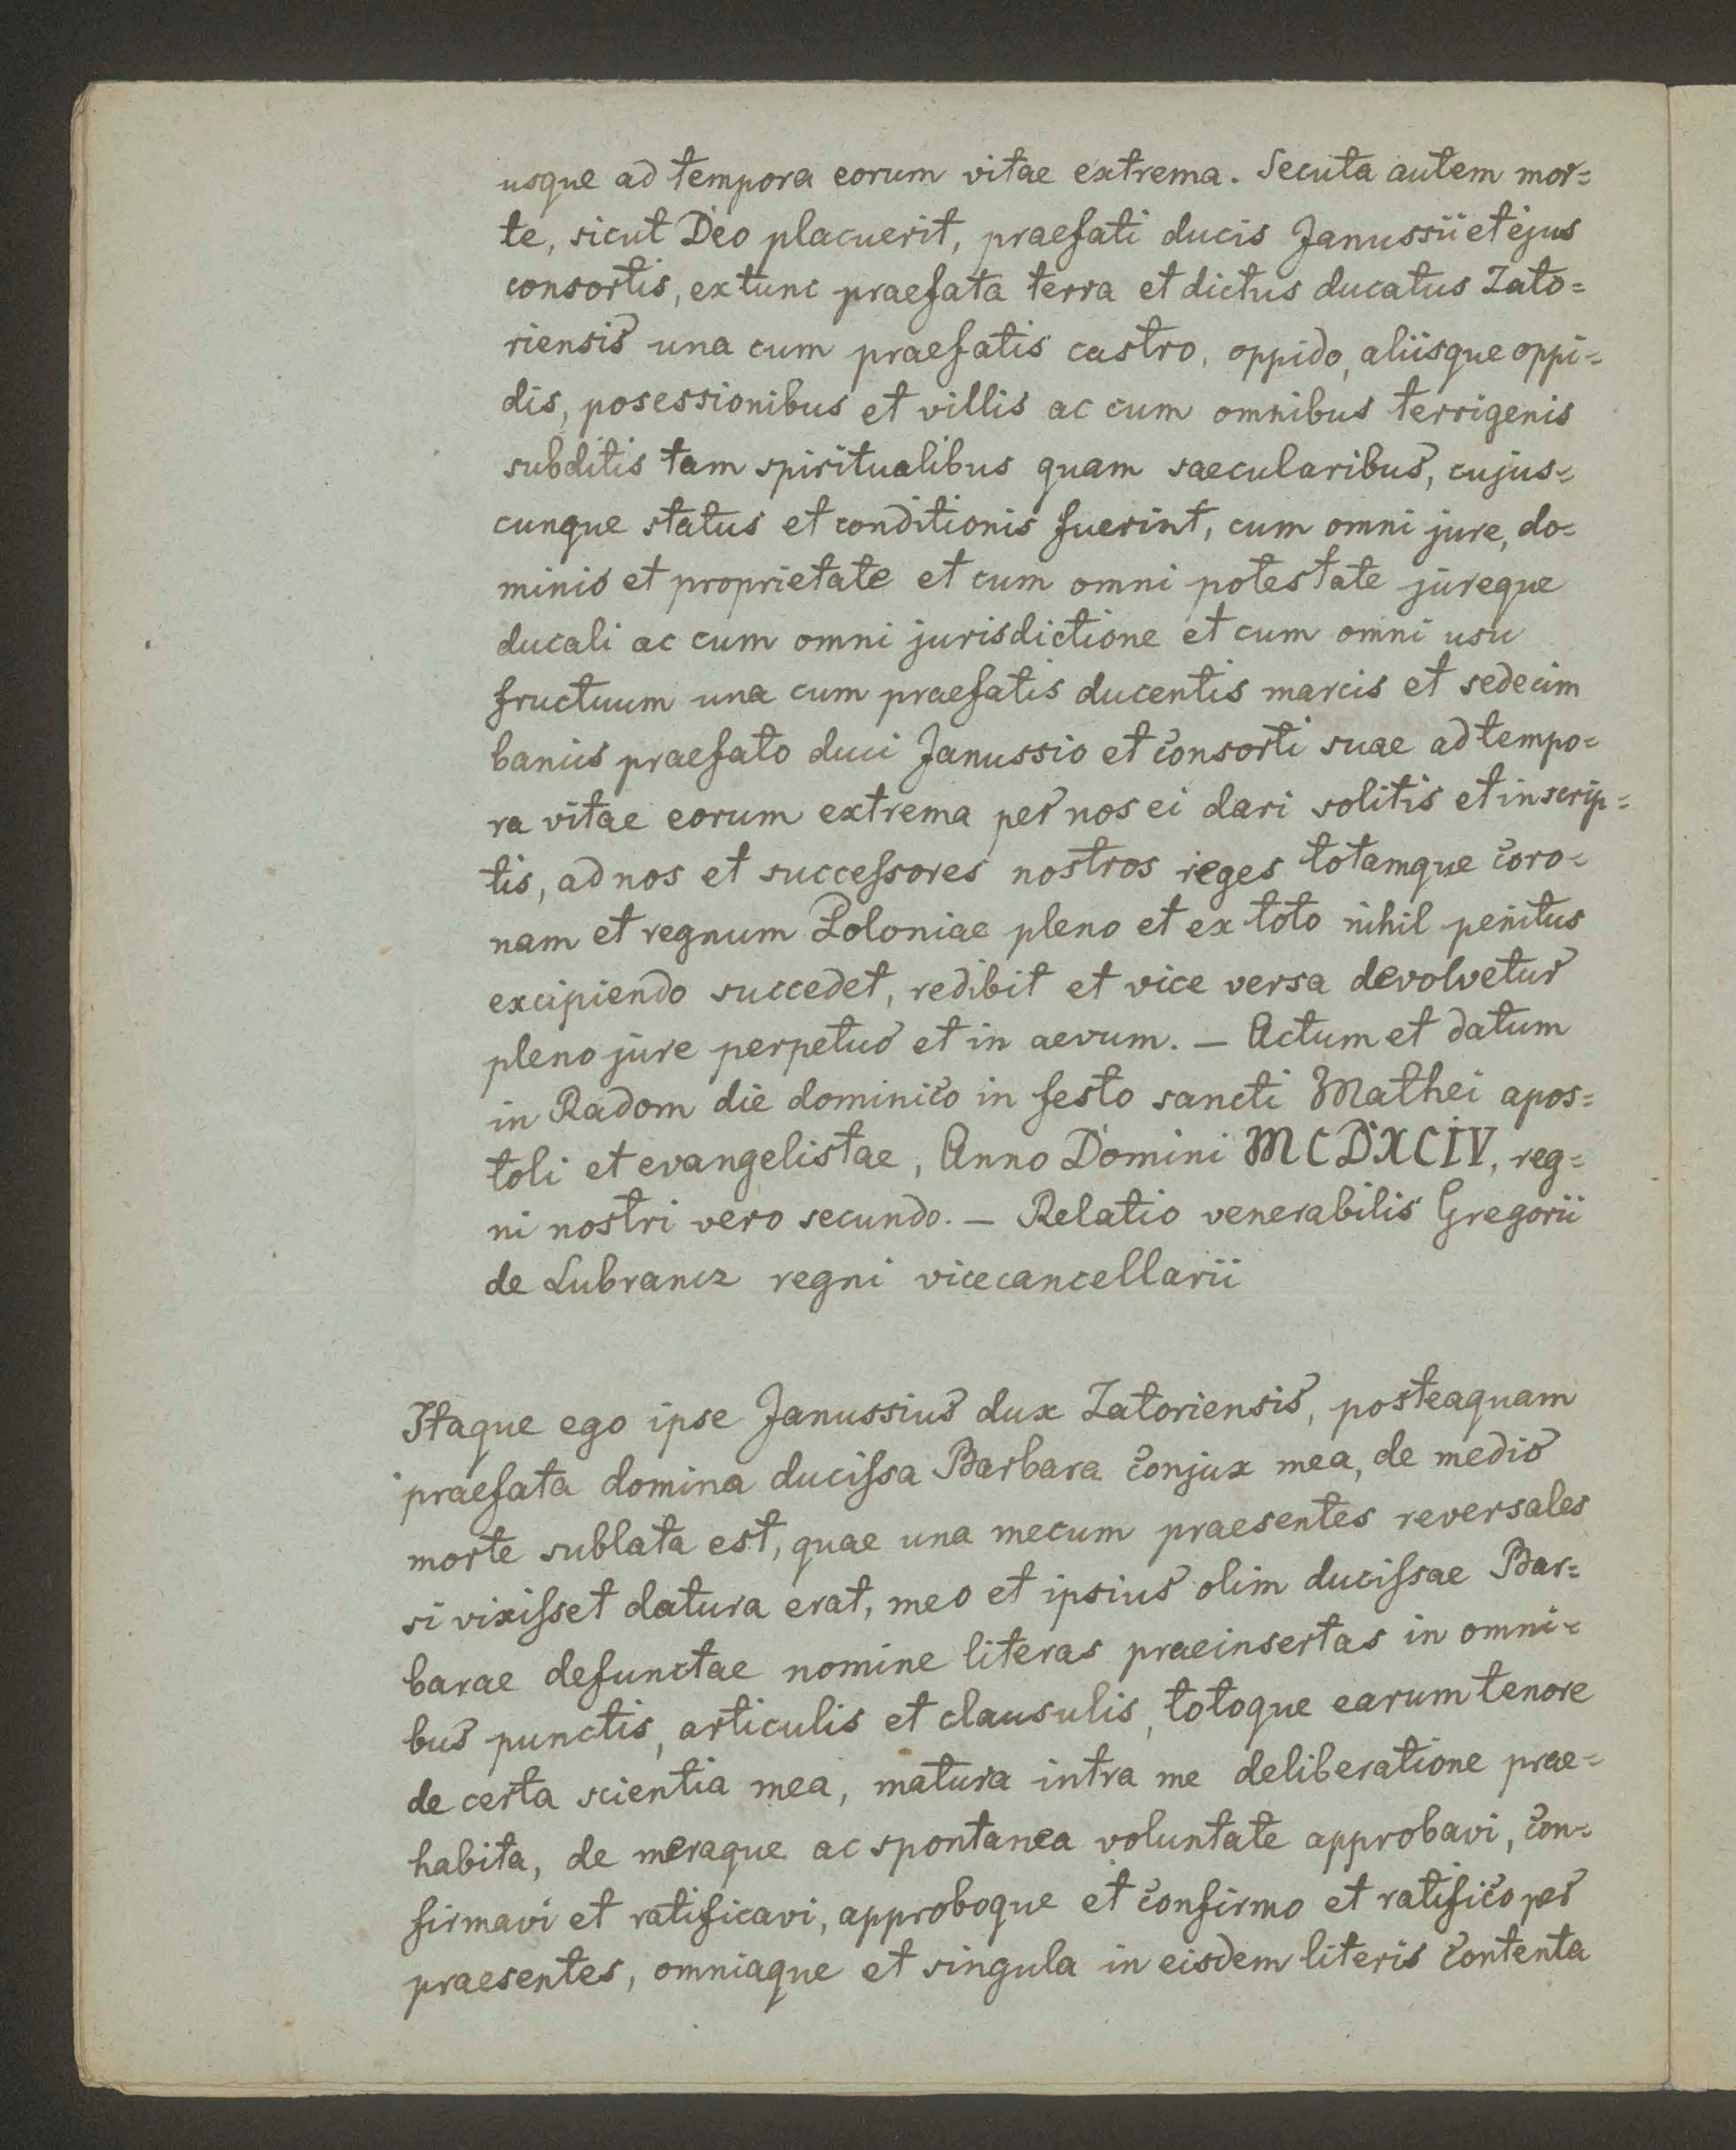 usque ad tempora eorum vitae extrema. Secuta autem mor=
te, sicut Deo placuerit, praefati ducis Janussii et ejus
consortis, extunc praefata terra et dictus ducatus Zato=
riensis una cum praefatis castro, oppido, aliisque oppi=
dis, posessionibus et villis ac cum omnibus terrigenis
subditis tam spiritualibus quam saecularibus, cujus=
cunque status et conditionis fuerint, cum omni jure, do=
minio et proprietate et cum omni potestate jureque
ducali ac cum omni jurisdictione et cum omni usu
fructuum una cum praefatis ducentis marcis et sedecim
banciis praefato duci Janussio et consorti suae ad tempo=
ra vitae eorum extrema per nos ei dari solitis et inscrip=
tis, ad nos et succeſsores nostros reges totamque coro=
nam et regnum Poloniae pleno et ex toto nihil penitus
excipiendo succedet, redibit et vice versa devolvetur
pleno jure perpetuo et in aevum. — Actum et datum
in Radom die dominico in festo sancti Mathei apos=
toli et evangelistae, Anno Domini MCDXCIV, reg=
ni nostri vero secundo. — Relatio venerabilis Gregorii
de Lubrancz regni vicecancellarii
Itaque ego ipse Janussius dux Zatoriensis, posteaquam
praefata domina duciſsa Barbara conjux mea, de medio
morte sublata est, quae una mecum praesentes reversales
si vixiſset datura erat, meo et ipsius olim duciſsae Bar=
barae defunctae nomine literas praeinsertas in omni=
bus punctis, articulis et clausulis, totoque earum tenore
de certa scientia mea, matura intra me deliberatione prae=
habita, de meraque ac spontanea voluntate approbavi, con=
firmavi et ratificavi, approboque et confirmo et ratifico per
praesentes, omniaque et singula in eisdem literis contenta